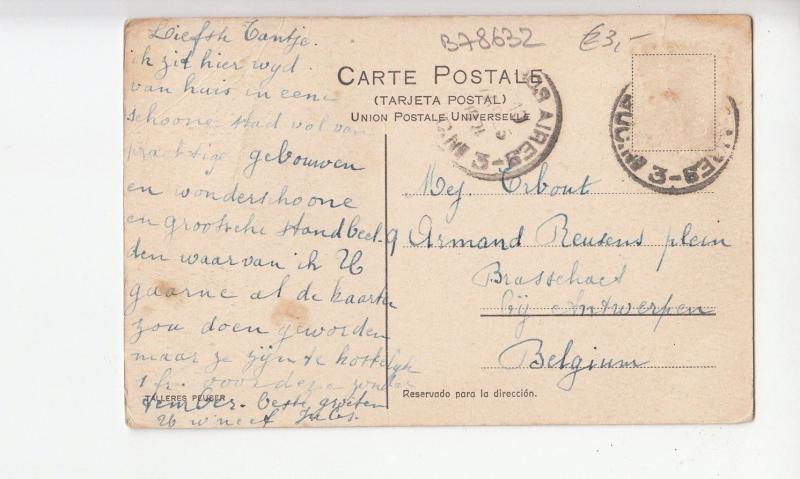 Liefste Tantje.
ik zit hier wyd
van huis in eene
schoone stad vol van
prachtige gebouwen
en wonderschoone
en grootsche standbeel-
den waarvan ik U
gaarne al de kaarten
zou doen geworden
maar ze zijn te kostelijk
1 fr. voor deze zonder
tember. beste groeten
Uw neef Jules.
TALLERES PEUSER
B78632
€3,-
CARTE POSTALE
(TARJETA POSTAL)
UNION POSTALE UNIVERSELLE
OS AIRES
3-S
BUEN
3-S
AIRES
Mej. Erbout
9 Armand Reusens plein
Brasschaet
bij Antwerpen
Belgium
Reservado para la dirección.